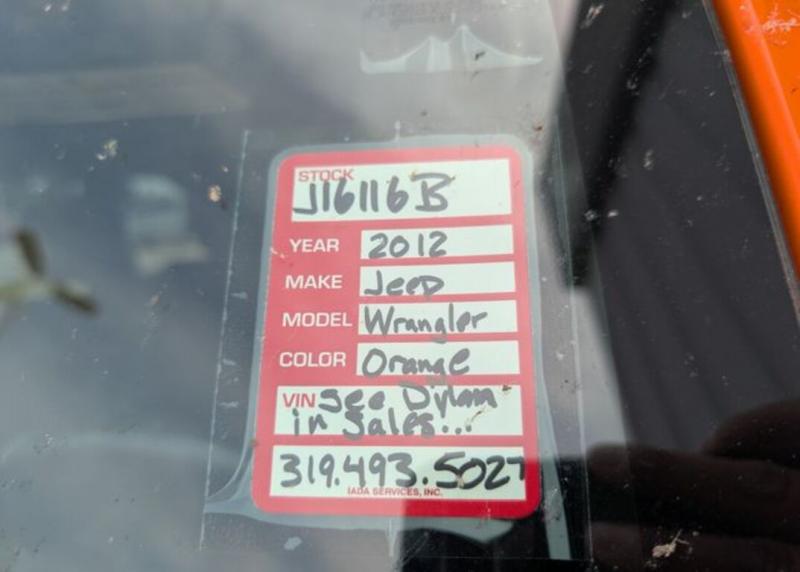 STOCK
J16116B
YEAR 2012
MAKE Jeep
MODEL Wrangler
COLOR Orange
VIN see Dylan
in Sales...
319.493.5027
IADA SERVICES, INC.